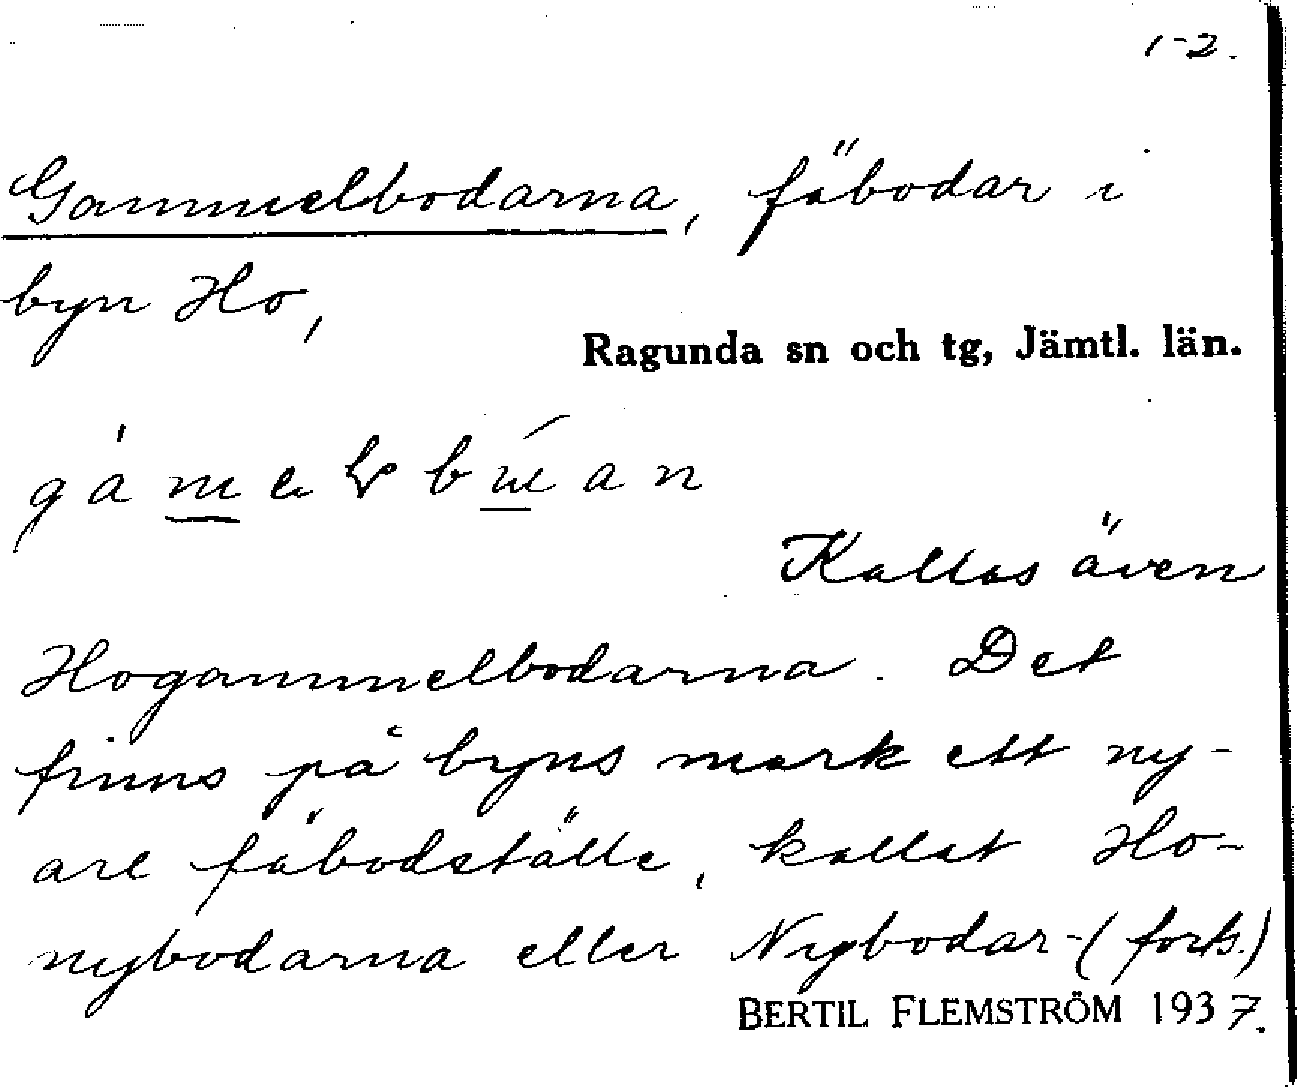 1-2.
Gammelbodarna, fäbodar i
byn Ho,
Ragunda sn och tg, Jämtl. län.
Kallas även
Hogammelbodarna. Det
finns på byns mark ett ny-
are fäbodställe, kallat Ho-
nybodarna eller Nybodar- (forts.)
BERTIL FLEMSTRÖM 1937.